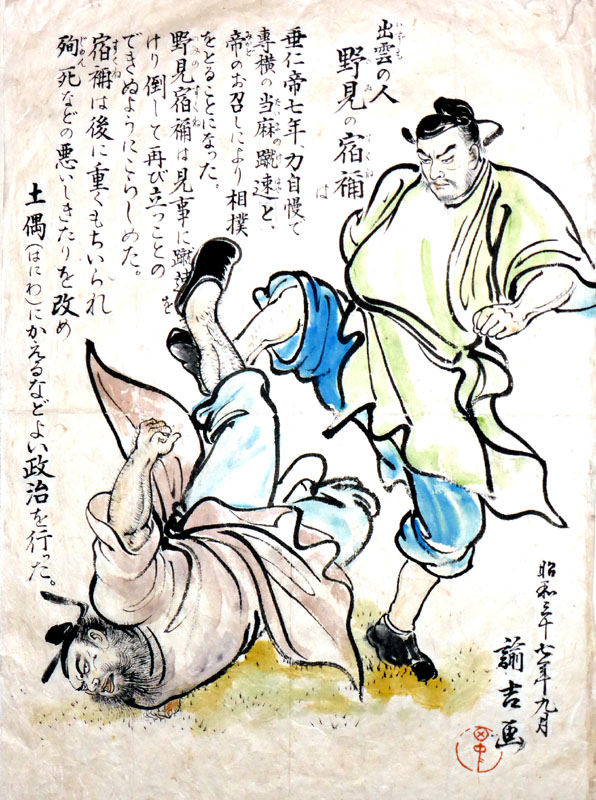 出雲の人
いずも
野見の宿禰は
のみ すくね
垂仁帝七年、力自慢で
専横の当麻蹴速と、
帝のお召しにより相撲
みかど
をとることになった。
野見宿禰は見事に蹴速を
のみのすくね
けり倒して再び立つことの
できぬようにこらしめた。
宿禰は後に重くもちいられ
すくね
殉死などの悪いしきたりを改め
じゅん
土偶(はにわ)にかえるなどよい政治を行った。
昭和三十七年九月
諭吉画